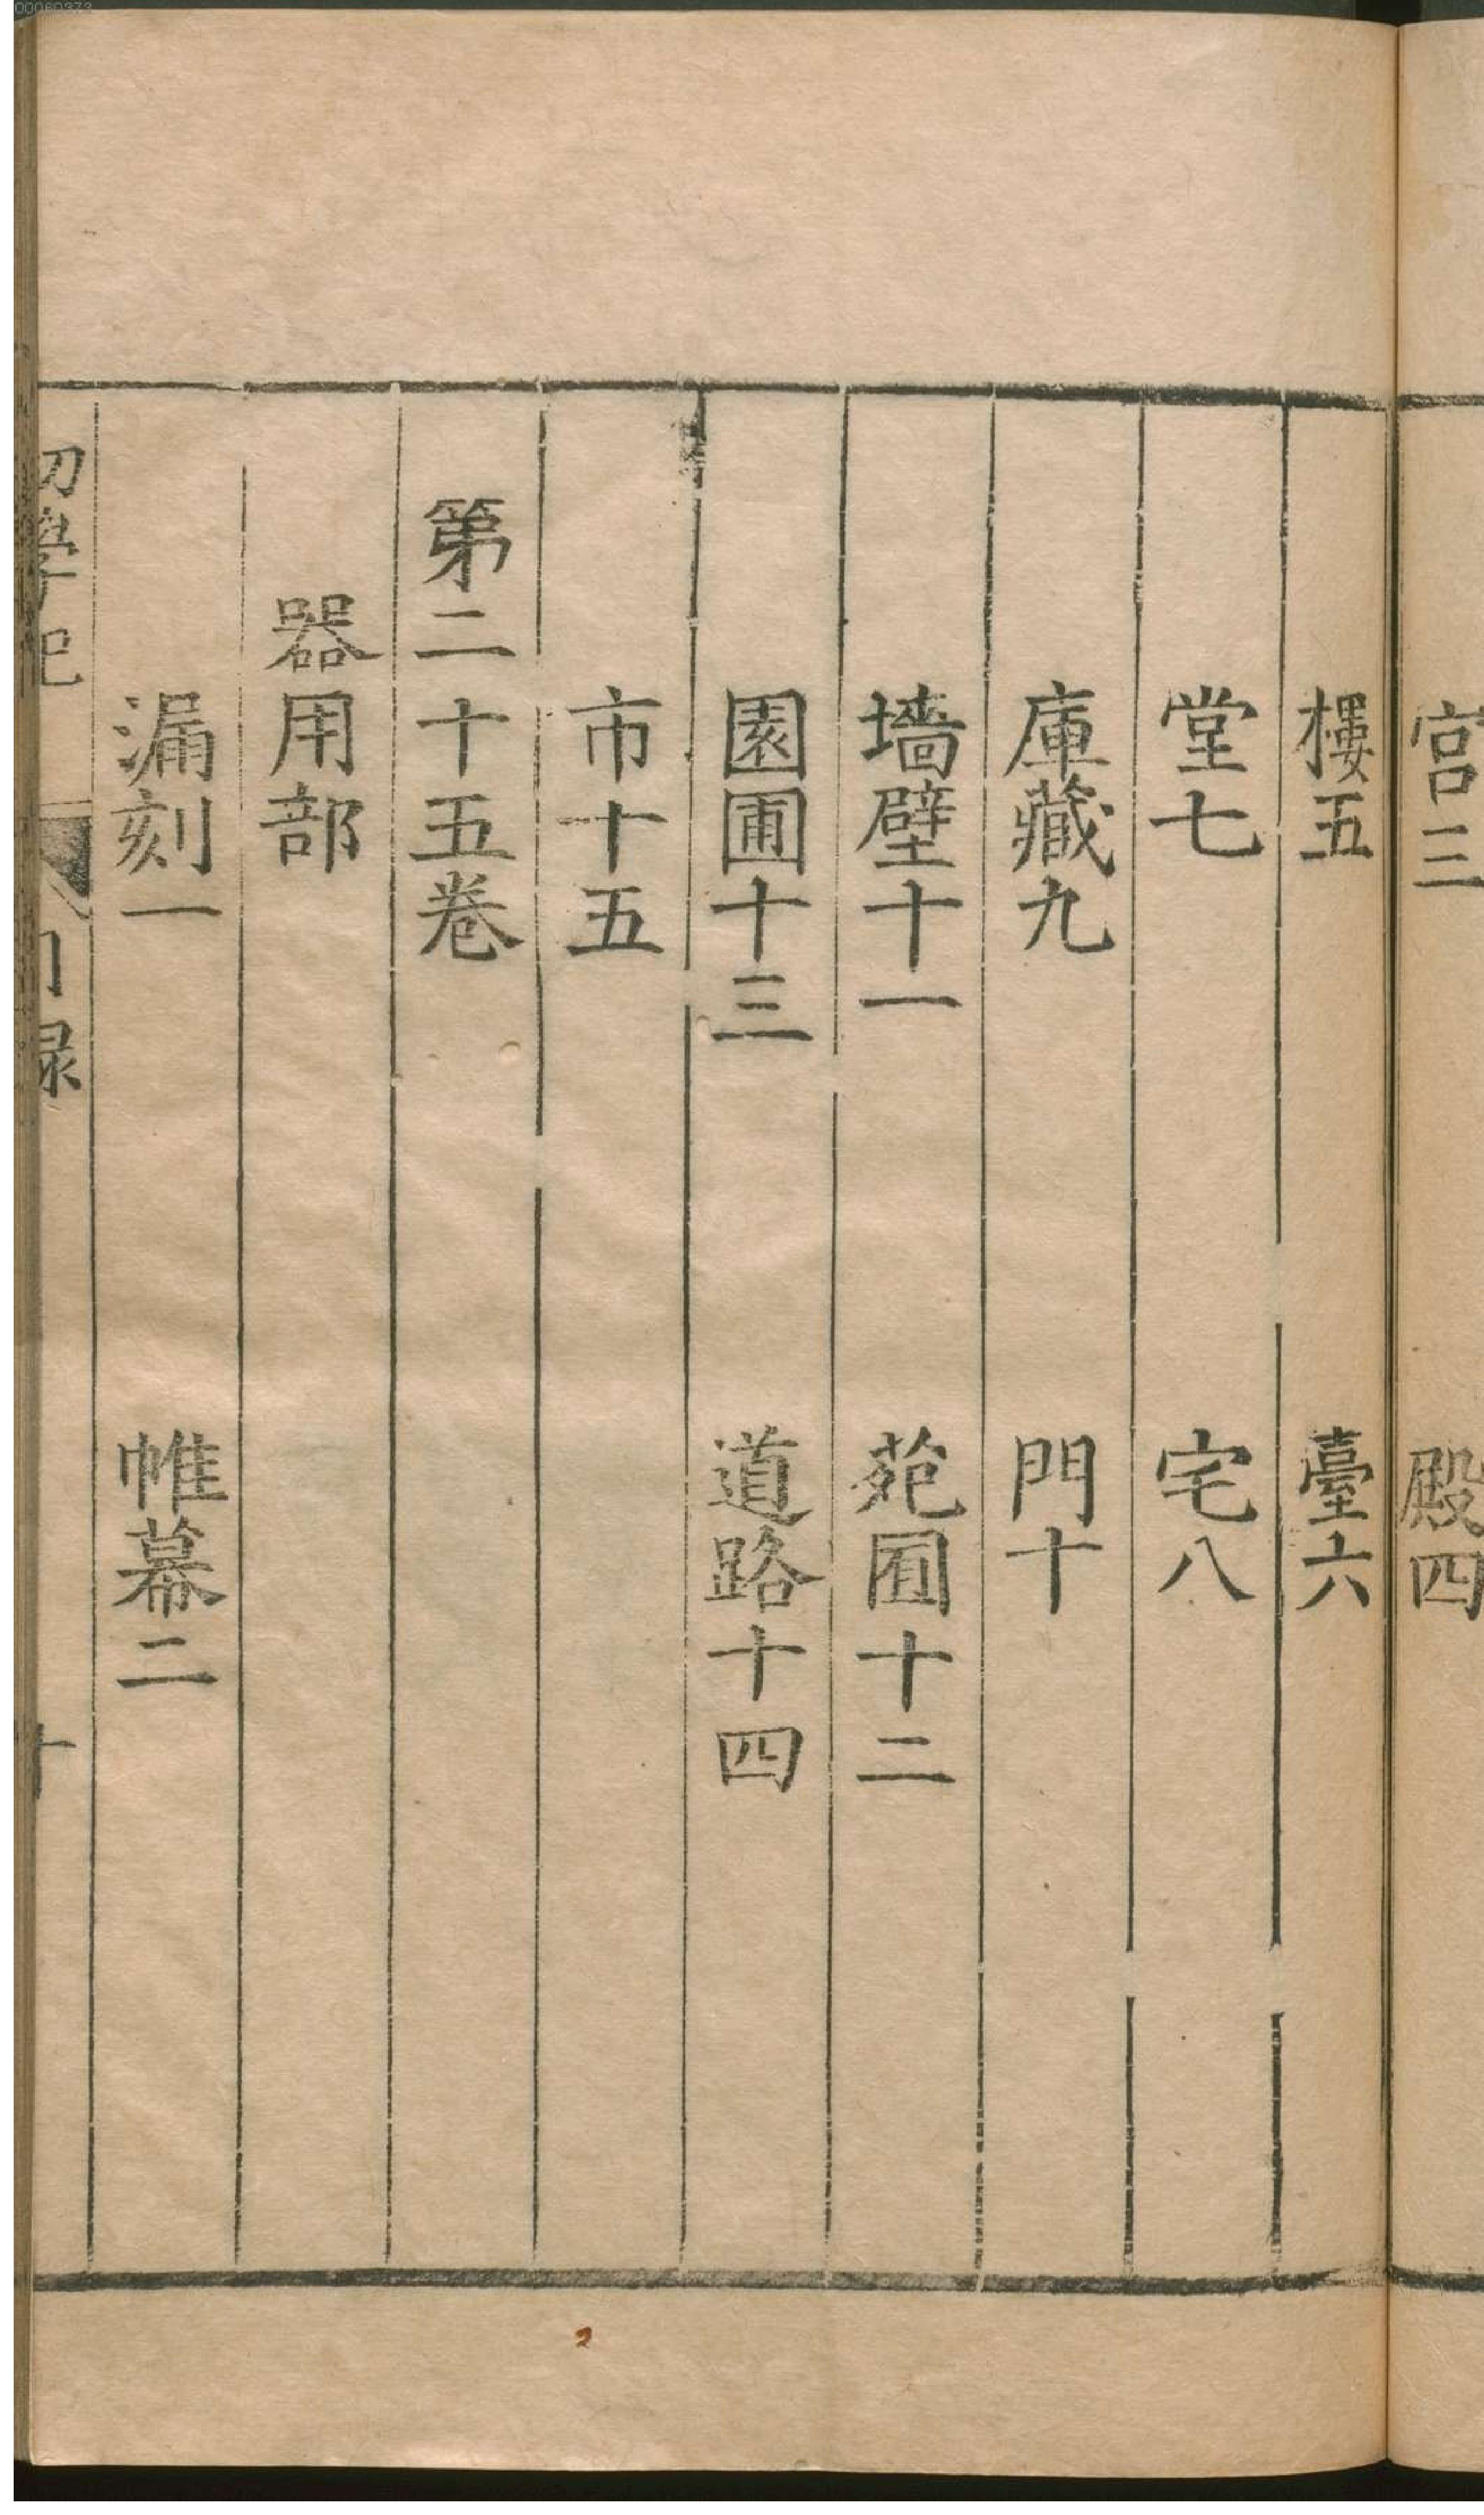 宮三 殿四
樓五 臺六
堂七 宅八
庫藏九 門十
墻壁十一 苑囿十二
園圃十三 道路十四
市十五
第二十五卷
器用部
漏刻一 帷幕二
初學記 目録 十
00060373